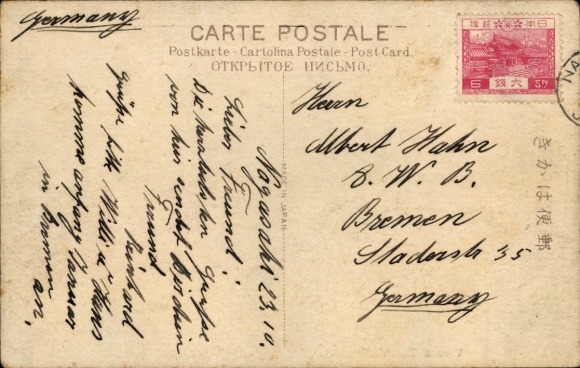 Germany
CARTE POSTALE
Postkarte - Cartolina Postale - Post Card
ОТКРЫТОЕ ПИСЬМО.
日本郵便
6 六銭 SN
NA
Nagasaki 23.10.
Lieber Freund!
Die herzlichsten Grüsse
von hier sendet Dir Dein
Freund
Reinhard
Grüsse bitte Willi & Hans
komme anfang Januar
in Bremen
an.
MADE IN JAPAN
Herrn
Albert Hahn
S. W. B.
Bremen
Staderstr 35
Germany
きかは便郵